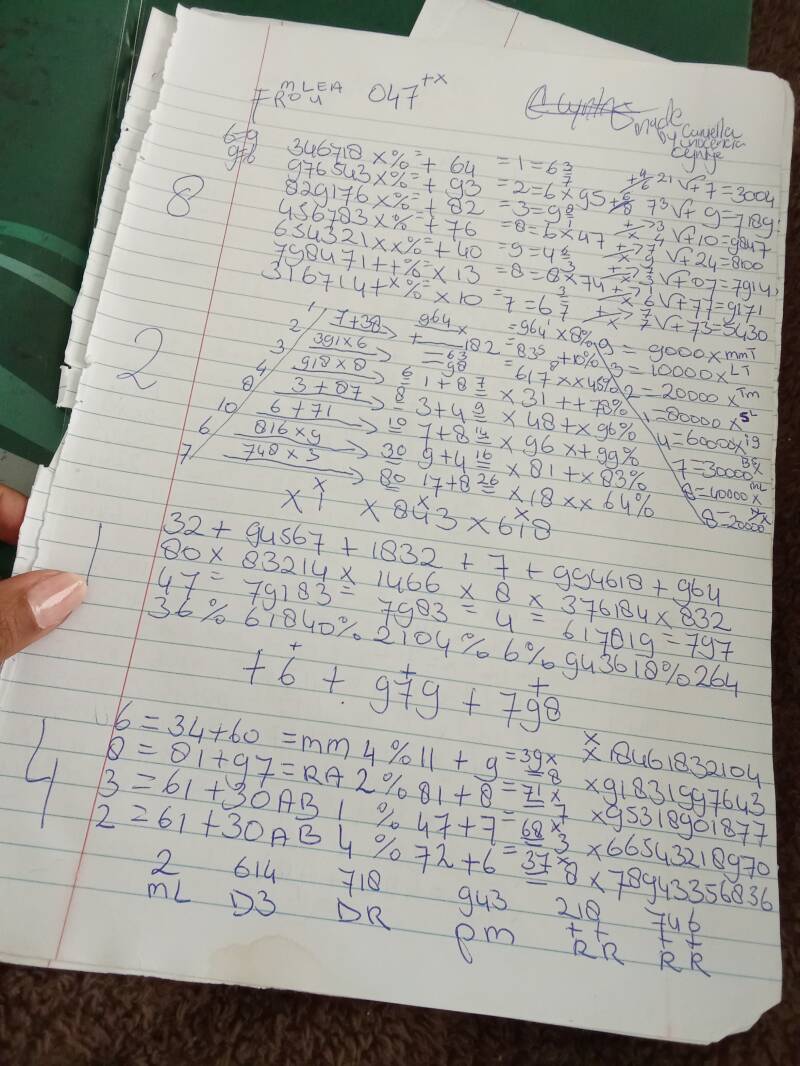 m L E A
F R O U 047 +x
made
by Curyella
6=9
9=6
8
346718 x% = + 64 = 1 = 6 3/7
976543 x% = + 93 = 2 = 6 x 95
829176 x% = + 82 = 3 = 9 8
456783 x% = + 76 = 8 = 6 x 47
654321 xx% = + 40 = 9 = 4 6
798471 ++% = x 13 = 8 = 8 x 74
316714 + x% = x 10 = 7 = 6 3/7
21 √+ 7 = 3004
73 √+ 9 = 7189
4 √+ 10 = 9847
√+ 24 = 8100
√+ 07 = 7914
6 √+ 77 = 9171
√+ 73 = 5430
2
1 7+38 964 x = 964 x 8% 9 = 9000 x mmT
2 391x6 + 182 = 835 + 10% 3 = 10000 x LT
3 918x8 = 63 98 = 617 x x 46% 2 = 20000 x Tm
4 3+87 6 1+87 x 31 ++ 78% 1 = 80000 x
8 6+71 8 3+49 x 48 + x 96% 4 = 60000 x ig
10 816x9 10 7+814 x 96 x + 99% 7 = 30000
6 748x3 30 9+416 x 81 + x 83% 8 = 40000 x mL
7 80 17+826 x 18 x x 64% 8 = 20000
x 1 x x 843 x 618
1
32 + 94567 + 1832 + 7 + 994618 + 964
80 x 83214 x 1466 x 8 x 376184 x 832
47 = 79183 = 7983 = 4 = 617819 = 797
36 % 61840 % 2104 % 6 % 943618 % 264
+ 6 + 979 + 798
4
6 = 34 + 60 = mm 4 % 11 + 9 = 39 x x 18461832104
8 = 81 + 97 = RA 2 % 81 + 8 = 71 x 8 x 91831997643
3 = 61 + 30 AB 1 % 47 + 7 = 68 x 7 x 95318901877
2 = 61 + 30 AB 4 % 72 + 6 = 37 x 3 x 66543218970
8 x 78943356836
2 614 718 943 218 746
mL D3 DR pm ++ ++
RR RR